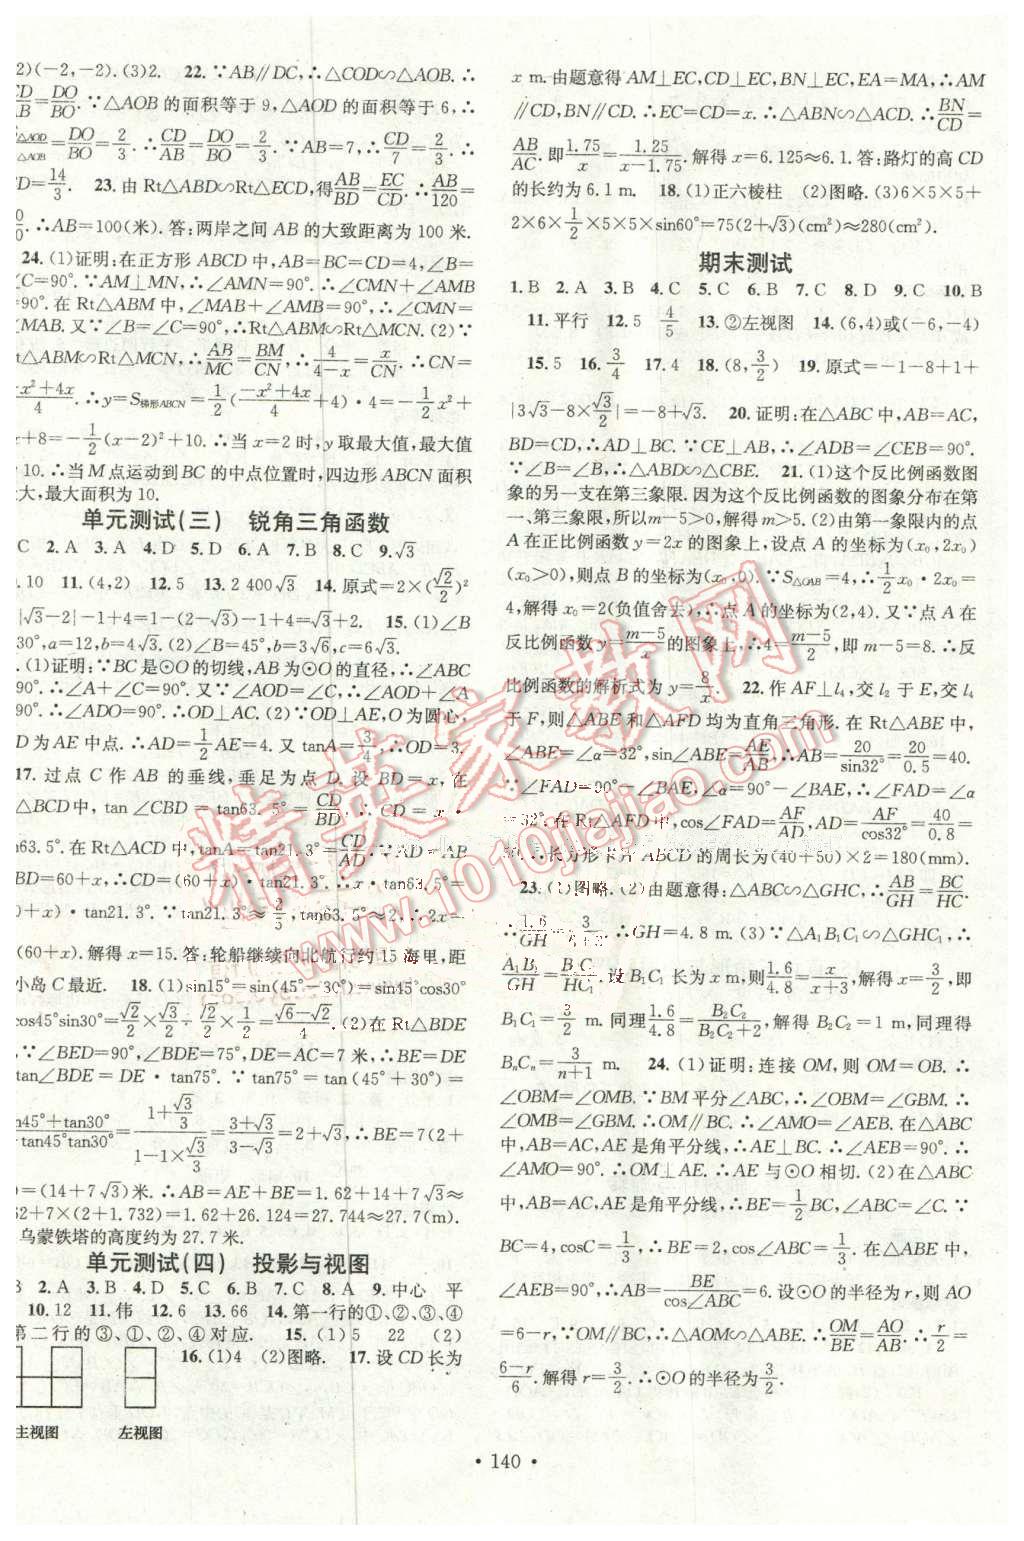 2)(-2,-2).(3)2. 22.∵AB∥DC,∴△COD∽△AOB.∴
CD/AB=DO/BO.∵△AOB 的面积等于 9,△AOD 的面积等于 6,∴
S△AOD/S△AOB=DO/BO=2/3.∴CD/AB=DO/BO=2/3.∵AB=7,∴CD/7=2/3.∴
CD=14/3. 23.由 Rt△ABD∽Rt△ECD,得AB/BD=EC/CD.∴AB/120=
.∴AB=100(米).答:两岸之间 AB 的大致距离为 100 米.
24.(1)证明:在正方形 ABCD 中,AB=BC=CD=4,∠B=
∠C=90°.∵AM⊥MN,∴∠AMN=90°.∴∠CMN+∠AMB
=90°.在 Rt△ABM 中,∠MAB+∠AMB=90°.∴∠CMN=
∠MAB.又∵∠B=∠C=90°,∴Rt△ABM∽Rt△MCN.(2)∵
Rt△ABM∽Rt△MCN,∴AB/MC=BM/CN.∴4/(4-x)=x/CN.∴CN=
(-x²+4x)/4.∴y=S梯形ABCN=1/2((-x²+4x)/4+4)·4=-1/2x²+
2x+8=-1/2(x-2)²+10.∴当 x=2 时,y 取最大值,最大值
为 10.∴当 M 点运动到 BC 的中点位置时,四边形 ABCN 面积
最大,最大面积为 10.
单元测试(三) 锐角三角函数
C 2.A 3.A 4.D 5.D 6.A 7.B 8.C 9.√3
.10 11.(4,2) 12.5 13.2 400√3 14.原式=2×(√2/2)²
|√3-2|-1+4=1-(2-√3)-1+4=2+√3. 15.(1)∠B
30°,a=12,b=4√3.(2)∠B=45°,b=3√6,c=6√3.
.(1)证明:∵BC 是⊙O 的切线,AB 为⊙O 的直径,∴∠ABC
90°.∴∠A+∠C=90°.又∵∠AOD=∠C,∴∠AOD+∠A=
90°.∴∠ADO=90°.∴OD⊥AC.(2)∵OD⊥AE,O 为圆心,
D 为 AE 中点.∴AD=1/2AE=4.又 tanA=3/4,∴OD=3.
17.过点 C 作 AB 的垂线,垂足为点 D.设 BD=x,在
△BCD 中,tan∠CBD=tan63.5°=CD/BD.∴CD=x·
n63.5°.在 Rt△ACD 中,tanA=tan21.3°=CD/AD.∵AD=AB
BD=60+x,∴CD=(60+x)·tan21.3°.∴x·tan63.5°=
0+x)·tan21.3°.∵tan21.3°≈2/5,tan63.5°≈2,∴2x=
(60+x).解得 x=15.答:轮船继续向北航行约 15 海里,距
小岛 C 最近. 18.(1)sin15°=sin(45°-30°)=sin45°cos30°
cos45°sin30°=√2/2×√3/2-√2/2×1/2=(√6-√2)/4.(2)在 Rt△BDE
,∵∠BED=90°,∠BDE=75°,DE=AC=7 米,∴BE=DE
tan∠BDE=DE·tan75°.∵tan75°=tan(45°+30°)=
(tan45°+tan30°)/(1-tan45°tan30°)=(1+√3/3)/(1-1×√3/3)=(3+√3)/(3-√3)=2+√3,∴BE=7(2+
)=(14+7√3)米.∴AB=AE+BE=1.62+14+7√3≈
62+7×(2+1.732)=1.62+26.124=27.744≈27.7(m).
乌蒙铁塔的高度约为 27.7 米.
单元测试(四) 投影与视图
B 2.A 3.B 4.D 5.C 6.B 7.C 8.A 9.中心 平
10.12 11.伟 12.6 13.66 14.第一行的①、②、③、④
第二行的③、①、②、④对应. 15.(1)5 22 (2)
主视图 左视图
16.(1)4 (2)图略. 17.设 CD 长为
x m.由题意得 AM⊥EC,CD⊥EC,BN⊥EC,EA=MA,∴AM
∥CD,BN∥CD.∴EC=CD=x.∴△ABN∽△ACD.∴BN/CD=
AB/AC.即1.75/x=1.25/(x-1.75).解得 x=6.125≈6.1.答:路灯的高 CD
的长约为 6.1 m. 18.(1)正六棱柱 (2)图略.(3)6×5×5+
2×6×1/2×5×5×sin60°=75(2+√3)(cm²)≈280(cm²).
期末测试
1.B 2.A 3.B 4.C 5.C 6.B 7.C 8.D 9.C 10.B
11.平行 12.5 4/5 13.②左视图 14.(6,4)或(-6,-4)
15.5 16.3/4 17.4 18.(8,3/2) 19.原式=-1-8+1+
|3√3-8×√3/2|=-8+√3. 20.证明:在△ABC 中,AB=AC,
BD=CD,∴AD⊥BC.∵CE⊥AB,∴∠ADB=∠CEB=90°.
∵∠B=∠B,∴△ABD∽△CBE. 21.(1)这个反比例函数图
象的另一支在第三象限.因为这个反比例函数的图象分布在第
一、第三象限,所以 m-5>0,解得 m>5.(2)由第一象限内的点
A 在正比例函数 y=2x 的图象上,设点 A 的坐标为(x₀,2x₀)
(x₀>0),则点 B 的坐标为(x₀,0).∵S△OAB=4,∴1/2x₀·2x₀=
4,解得 x₀=2(负值舍去),∴点 A 的坐标为(2,4).又∵点 A 在
反比例函数 y=(m-5)/x的图象上,∴4=(m-5)/2,即 m-5=8.∴反
比例函数的解析式为 y=8/x. 22.作 AF⊥l₄,交 l₂ 于 E,交 l₄
于 F,则△ABE 和△AFD 均为直角三角形.在 Rt△ABE 中,
∠ABE=∠α=32°,sin∠ABE=AE/AB.∴AB=20/sin32°=20/0.5=40.
∵∠FAD=90°-∠BAE,∠α=90°-∠BAE,∴∠FAD=∠α
=32°.在 Rt△AFD 中,cos∠FAD=AF/AD,AD=AF/cos32°=40/0.8=
50.∴长方形卡片 ABCD 的周长为(40+50)×2=180(mm).
23.(1)图略.(2)由题意得:△ABC∽△GHC,∴AB/GH=BC/HC.
∴1.6/GH=3/.∴GH=4.8 m.(3)∵△A₁B₁C₁∽△GHC₁,∴
A₁B₁/GH=B₁C₁/HC₁.设 B₁C₁ 长为 x m,则1.6/4.8=x/(x+3),解得 x=3/2,即
B₁C₁=3/2 m.同理1.6/4.8=B₂C₂/(B₂C₂+2),解得 B₂C₂=1 m,同理得
BₙCₙ=3/(n+1) m. 24.(1)证明:连接 OM,则 OM=OB.∴
∠OBM=∠OMB.∵BM 平分∠ABC,∴∠OBM=∠GBM.∴
∠OMB=∠GBM.∴OM∥BC.∴∠AMO=∠AEB.在△ABC
中,AB=AC,AE 是角平分线,∴AE⊥BC.∴∠AEB=90°.∴
∠AMO=90°.∴OM⊥AE.∴AE 与⊙O 相切.(2)在△ABC
中,AB=AC,AE 是角平分线,∴BE=1/2BC,∠ABC=∠C.∵
BC=4,cosC=1/3,∴BE=2,cos∠ABC=1/3.在△ABE 中,
∠AEB=90°,∴AB=BE/cos∠ABC=6.设⊙O 的半径为 r,则 AO
=6-r,∵OM∥BC,∴△AOM∽△ABE.∴OM/BE=AO/AB.∴r/2=
(6-r)/6.解得 r=3/2.∴⊙O 的半径为3/2.
·140·
精英家教网
www.1010jiajiao.com